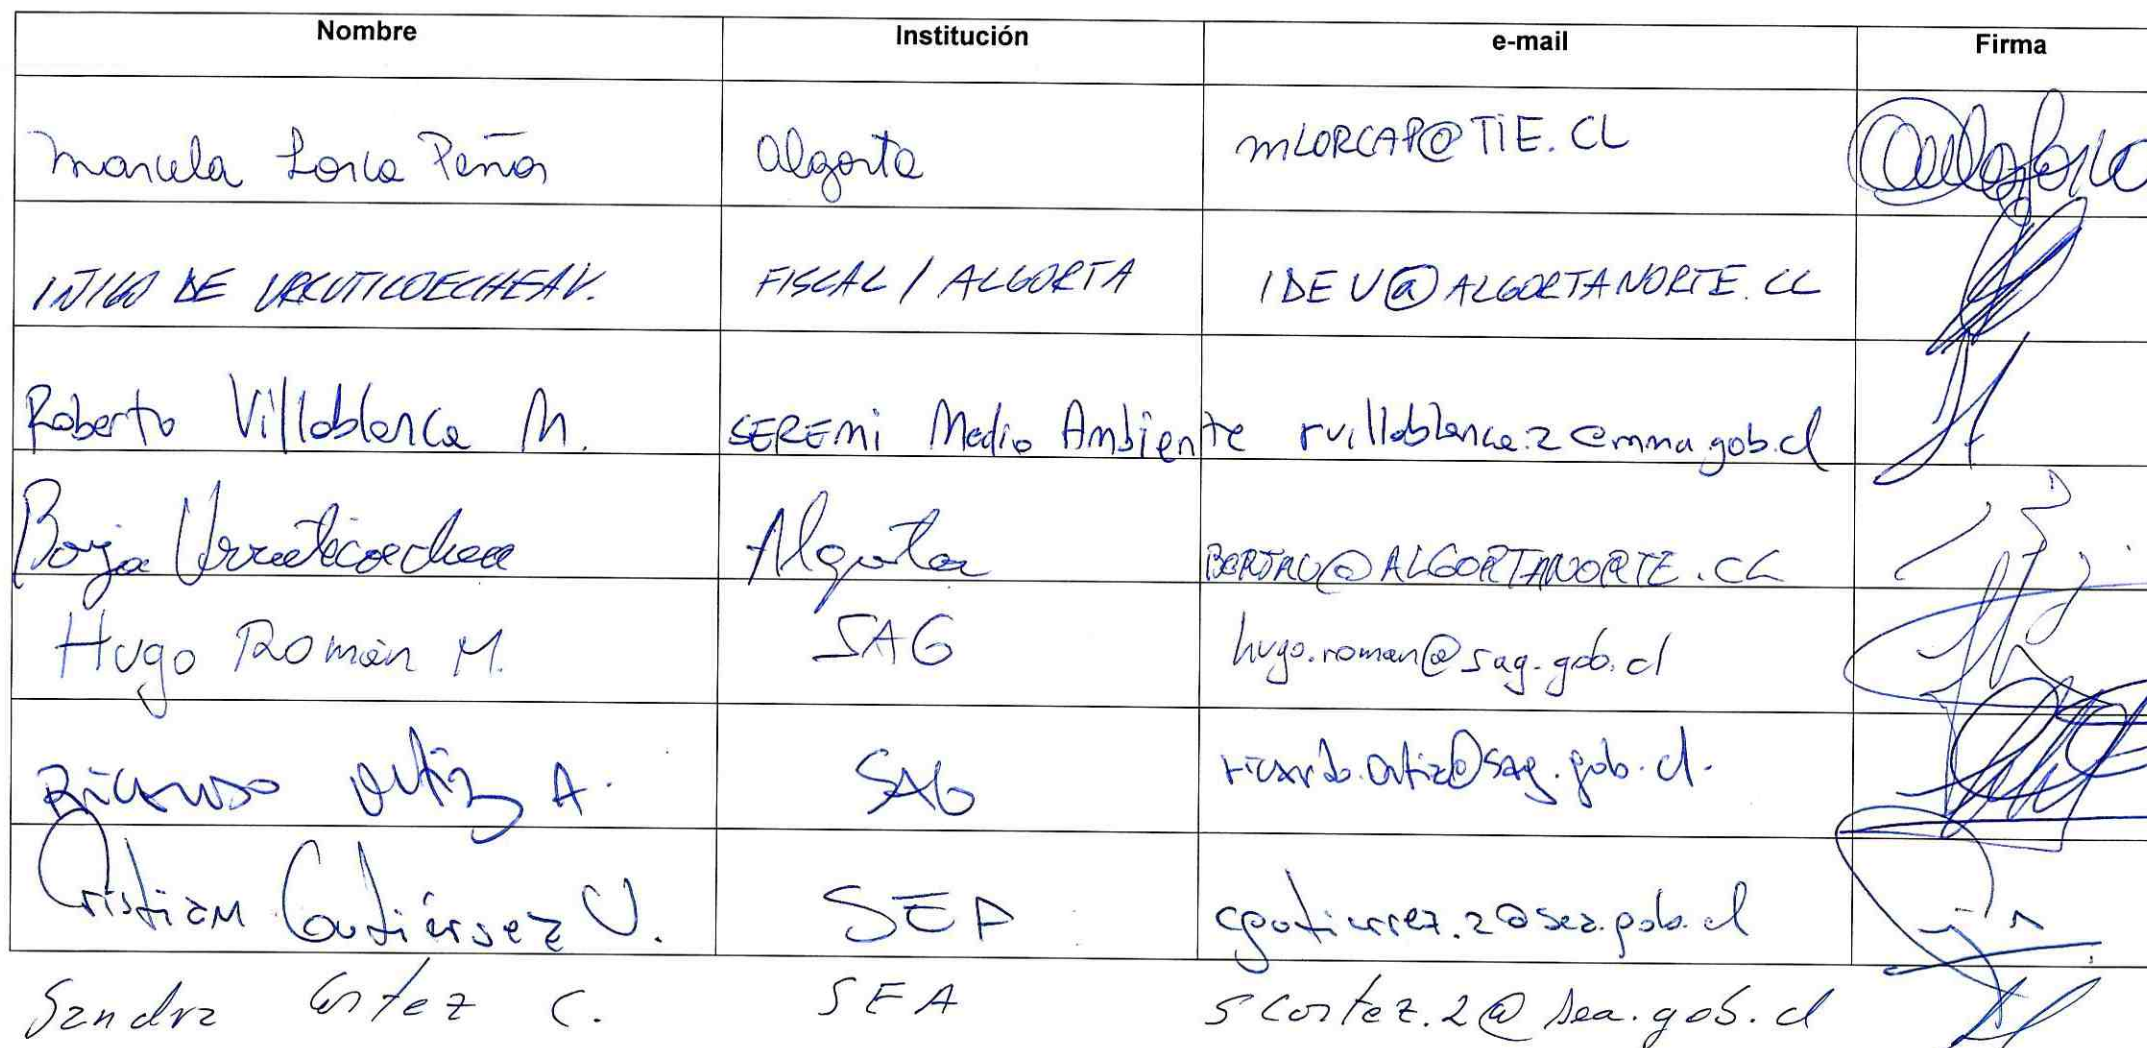 Nombre Institución e-mail Firma
Marcela Lorca Peña Algorta mLORCAP@TIE.CL
IÑIGO DE URRUTICOECHEA V. FISCAL / ALGORTA IDEU@ALGORTANORTE.CL
Roberto Villablanca M. SEREMi Medio Ambiente rvillablanca.2@mma.gob.cl
Borja Urruticoechea Algorta BORJAU@ALGORTANORTE.CL
Hugo Román M. SAG hugo.roman@sag.gob.cl
Ricardo Ortiz A. SAG ricardo.ortiz@sag.gob.cl.
Cristian Gutiérrez V. SEA cgutierrez.2@sea.gob.cl
Sandra Cortez C. SEA scortez.2@sea.gob.cl